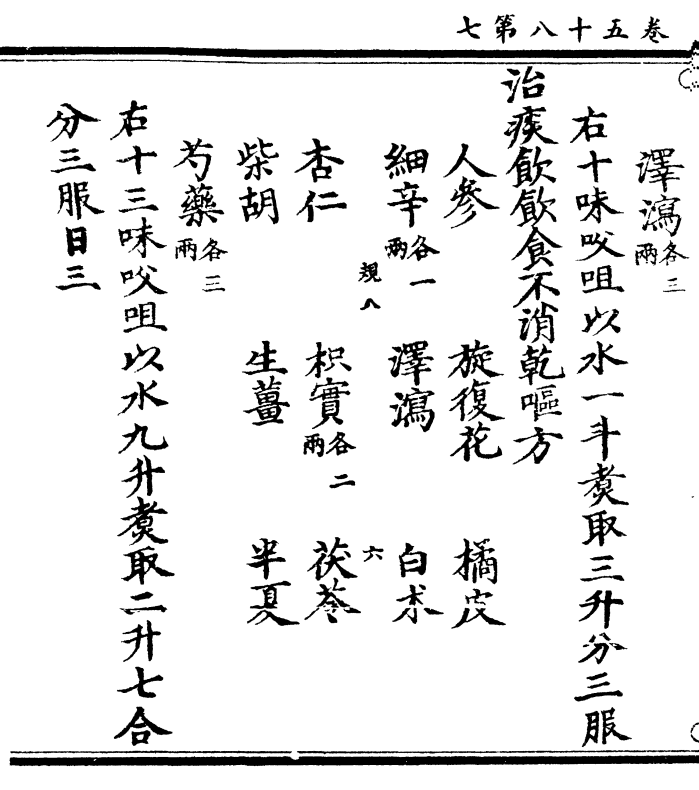 卷五十八第七
澤瀉各三兩
右十味㕮咀以水一斗煑取三升分三服
治痰飲飲食不消乾嘔方
人參 旋復花 橘皮
細辛各一兩 澤瀉 白术
規八 六
杏仁 枳實各二兩 茯苓
柴胡 生薑 半夏
芍藥各三兩
右十三味㕮咀以水九升煑取二升七合
分三服日三